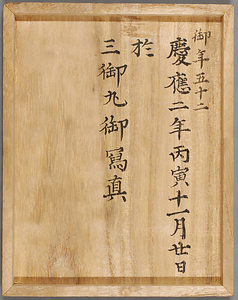 御年五十二
慶應二年丙寅十一月廿日
於
三御丸御寫真